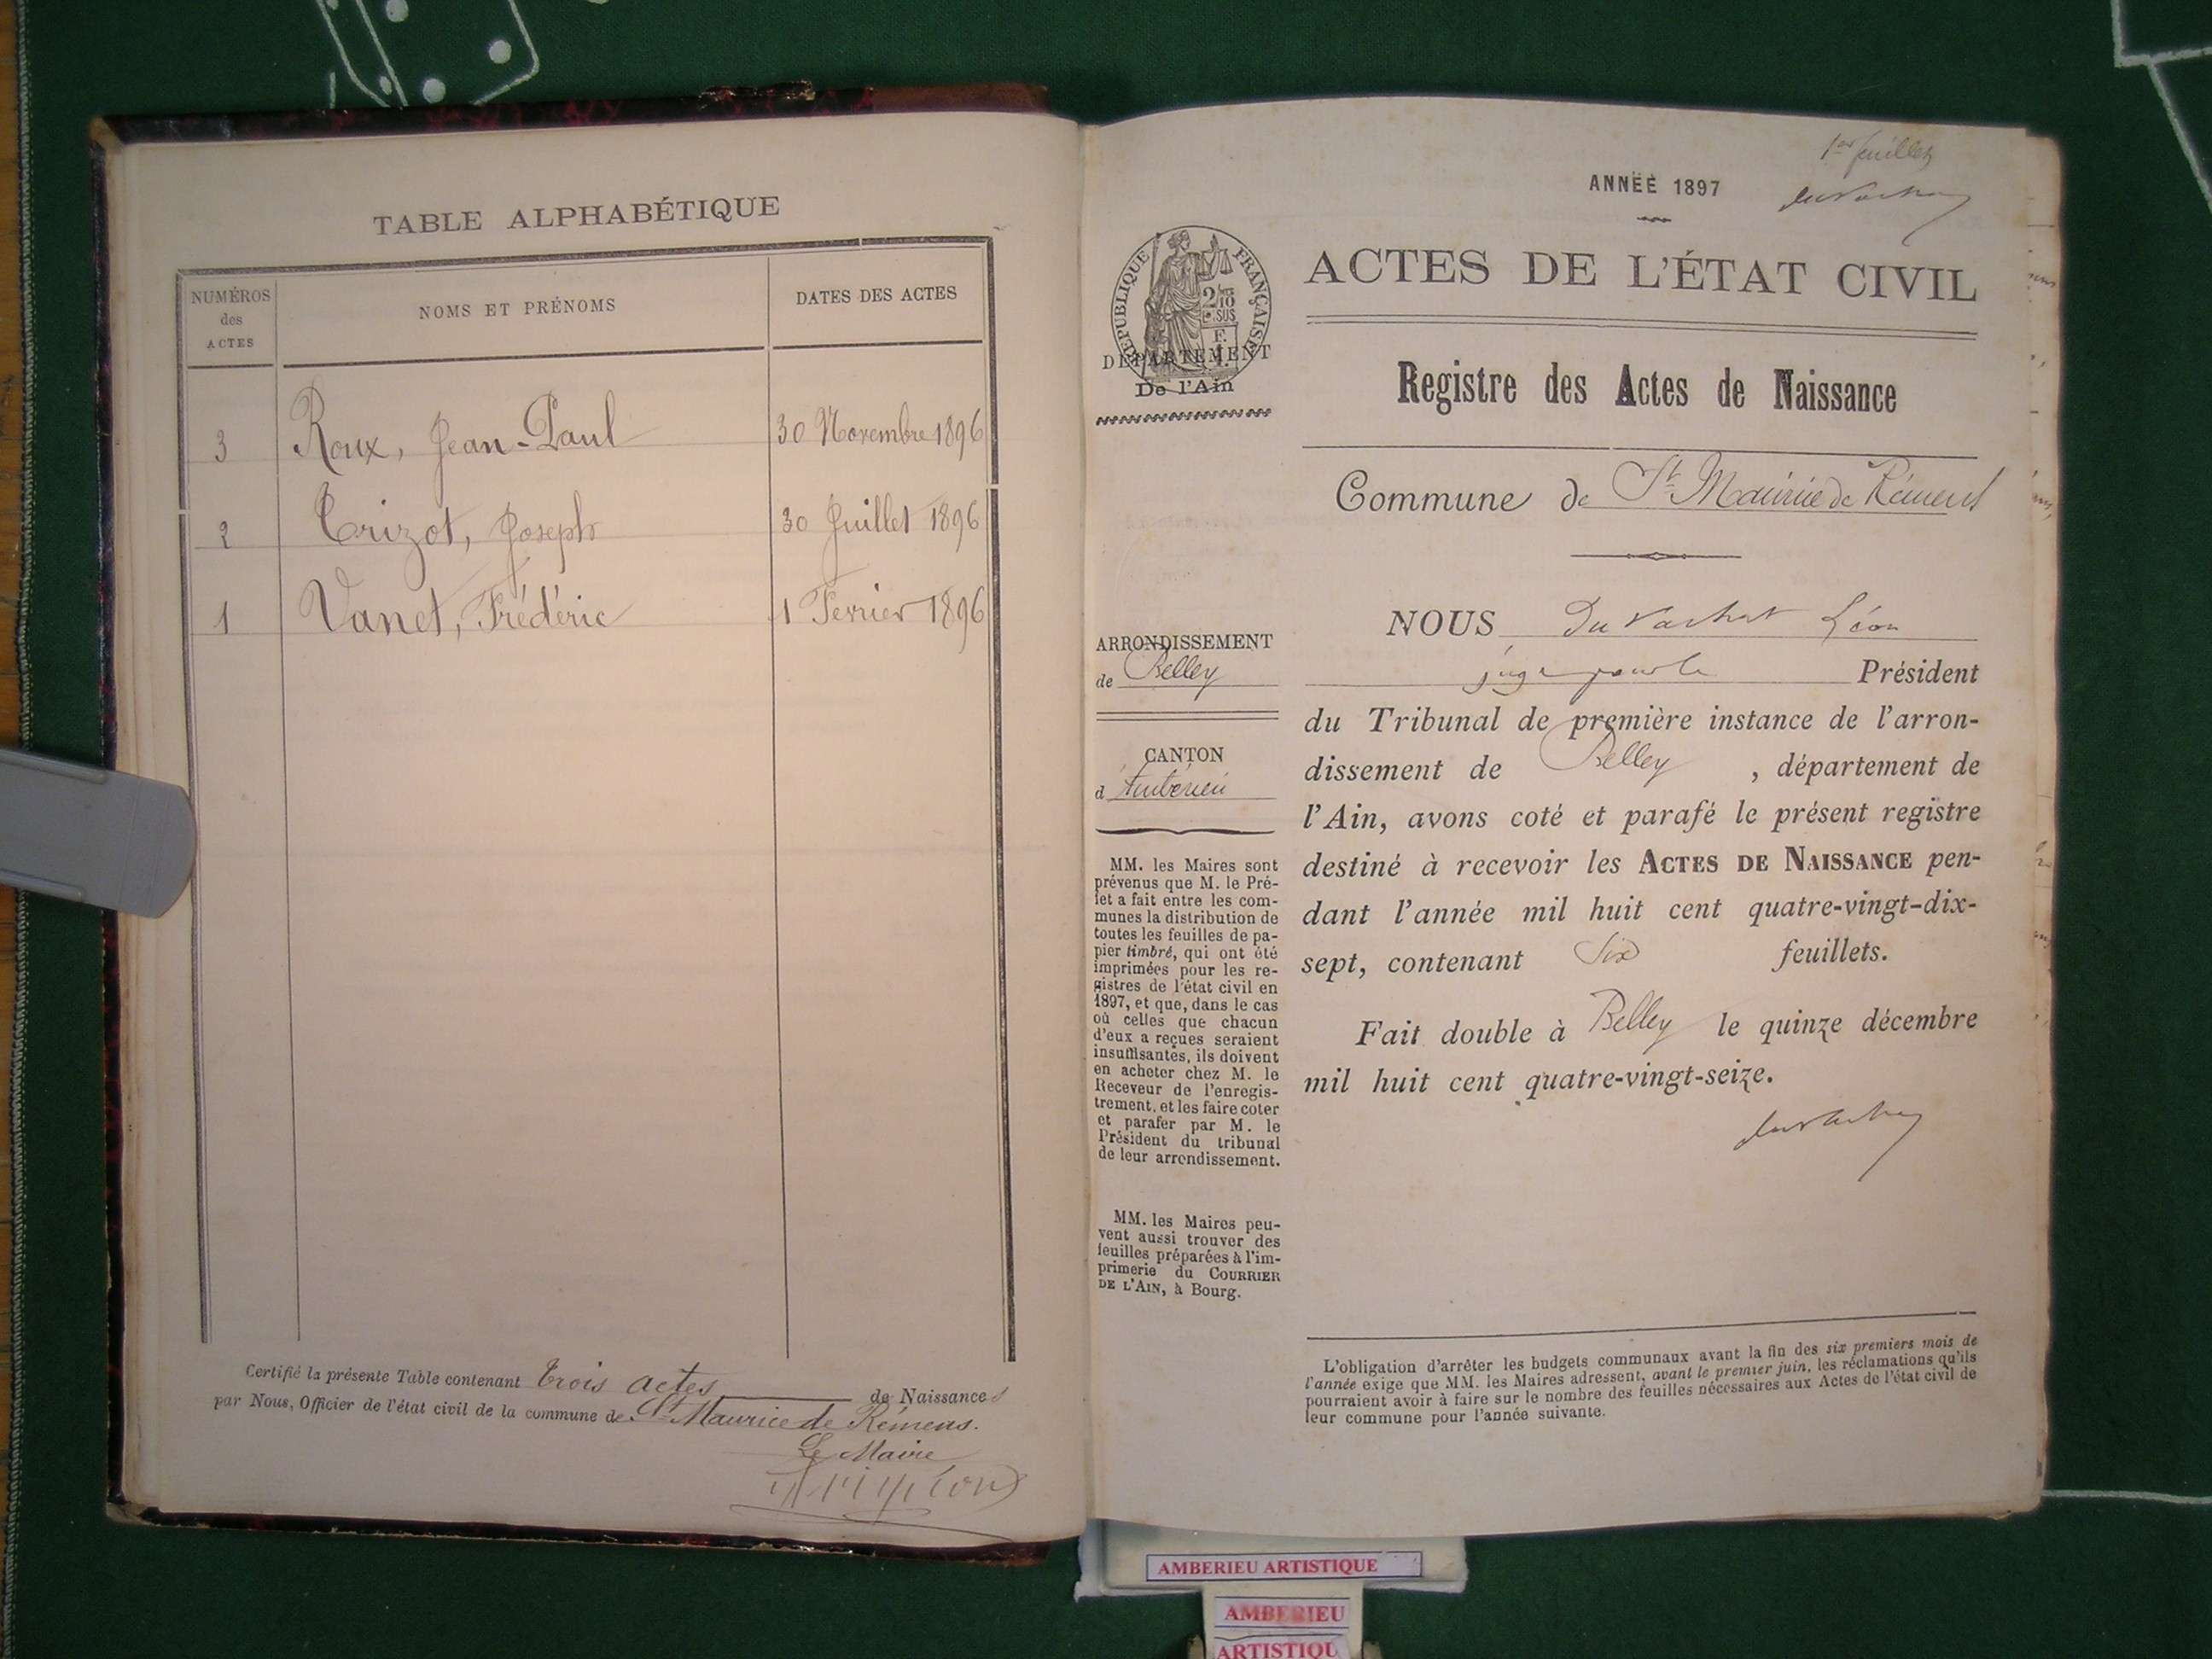 TABLE ALPHABÉTIQUE
NUMÉROS
des
ACTES
NOMS ET PRÉNOMS
DATES DES ACTES
3 Roux, Jean-Paul 30 Novembre 1896
2 Trizot, Joseph 30 Juillet 1896
1 Vanet, Frédéric 1 Fevrier 1896
Certifié la présente Table contenant trois actes de Naissances
par Nous, Officier de l'état civil de la commune de St Maurice de Rémens.
Le Maire
1er feuillet
ANNÉE 1897
RÉPUBLIQUE FRANÇAISE
DÉPARTEMENT
De l'Ain
ACTES DE L'ÉTAT CIVIL
Registre des Actes de Naissance
Commune de St Maurice de Rémens
ARRONDISSEMENT
de Belley
CANTON
d'Ambérieu
MM. les Maires sont
prévenus que M. le Pré-
fet a fait entre les com-
munes la distribution de
toutes les feuilles de pa-
pier timbré, qui ont été
imprimées pour les re-
gistres de l'état civil en
1897, et que, dans le cas
où celles que chacun
d'eux a reçues seraient
insuffisantes, ils doivent
en acheter chez M. le
Receveur de l'enregis-
trement, et les faire coter
et parafer par M. le
Président du tribunal
de leur arrondissement.
MM. les Maires peu-
vent aussi trouver des
feuilles préparées à l'im-
primerie du COURRIER
DE L'AIN, à Bourg.
NOUS Du Vachat Léon
juge pour le Président
du Tribunal de première instance de l'arron-
dissement de Belley, département de
l'Ain, avons coté et parafé le présent registre
destiné à recevoir les ACTES DE NAISSANCE pen-
dant l'année mil huit cent quatre-vingt-dix-
sept, contenant Six feuillets.
Fait double à Belley le quinze décembre
mil huit cent quatre-vingt-seize.
L'obligation d'arrêter les budgets communaux avant la fin des six premiers mois de
l'année exige que MM. les Maires adressent, avant le premier juin, les réclamations qu'ils
pourraient avoir à faire sur le nombre des feuilles nécessaires aux Actes de l'état civil de
leur commune pour l'année suivante.
AMBERIEU ARTISTIQUE
AMBERIEU
ARTISTIQU